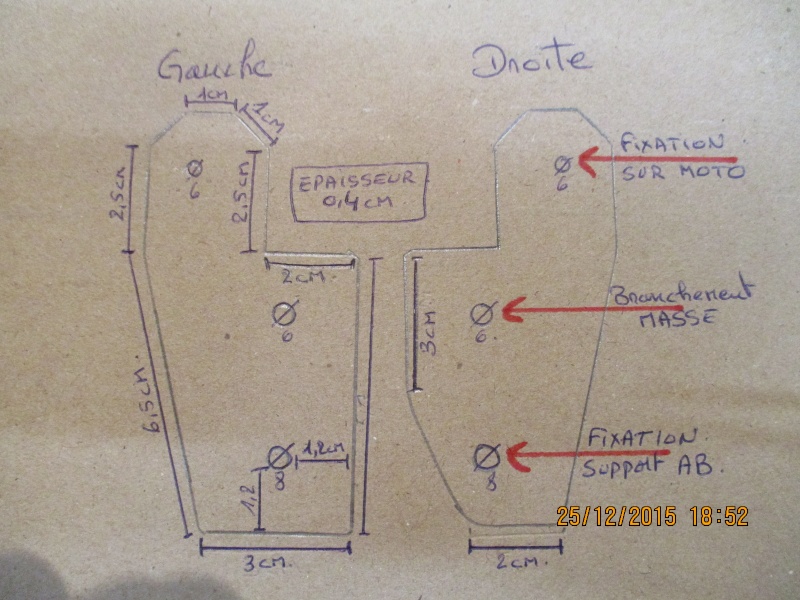 Gauche
Droite
1cm
1cm
2,5cm
6
2,5cm
EPAISSEUR
0,4cm
6
FIXATION
SUR MOTO
2cm.
6
6,5cm.
3cm
6.
Branchement
MASSE
1,2cm
8
1,2
8
FIXATION.
Support AB.
3cm.
2cm.
25/12/2015 18:52